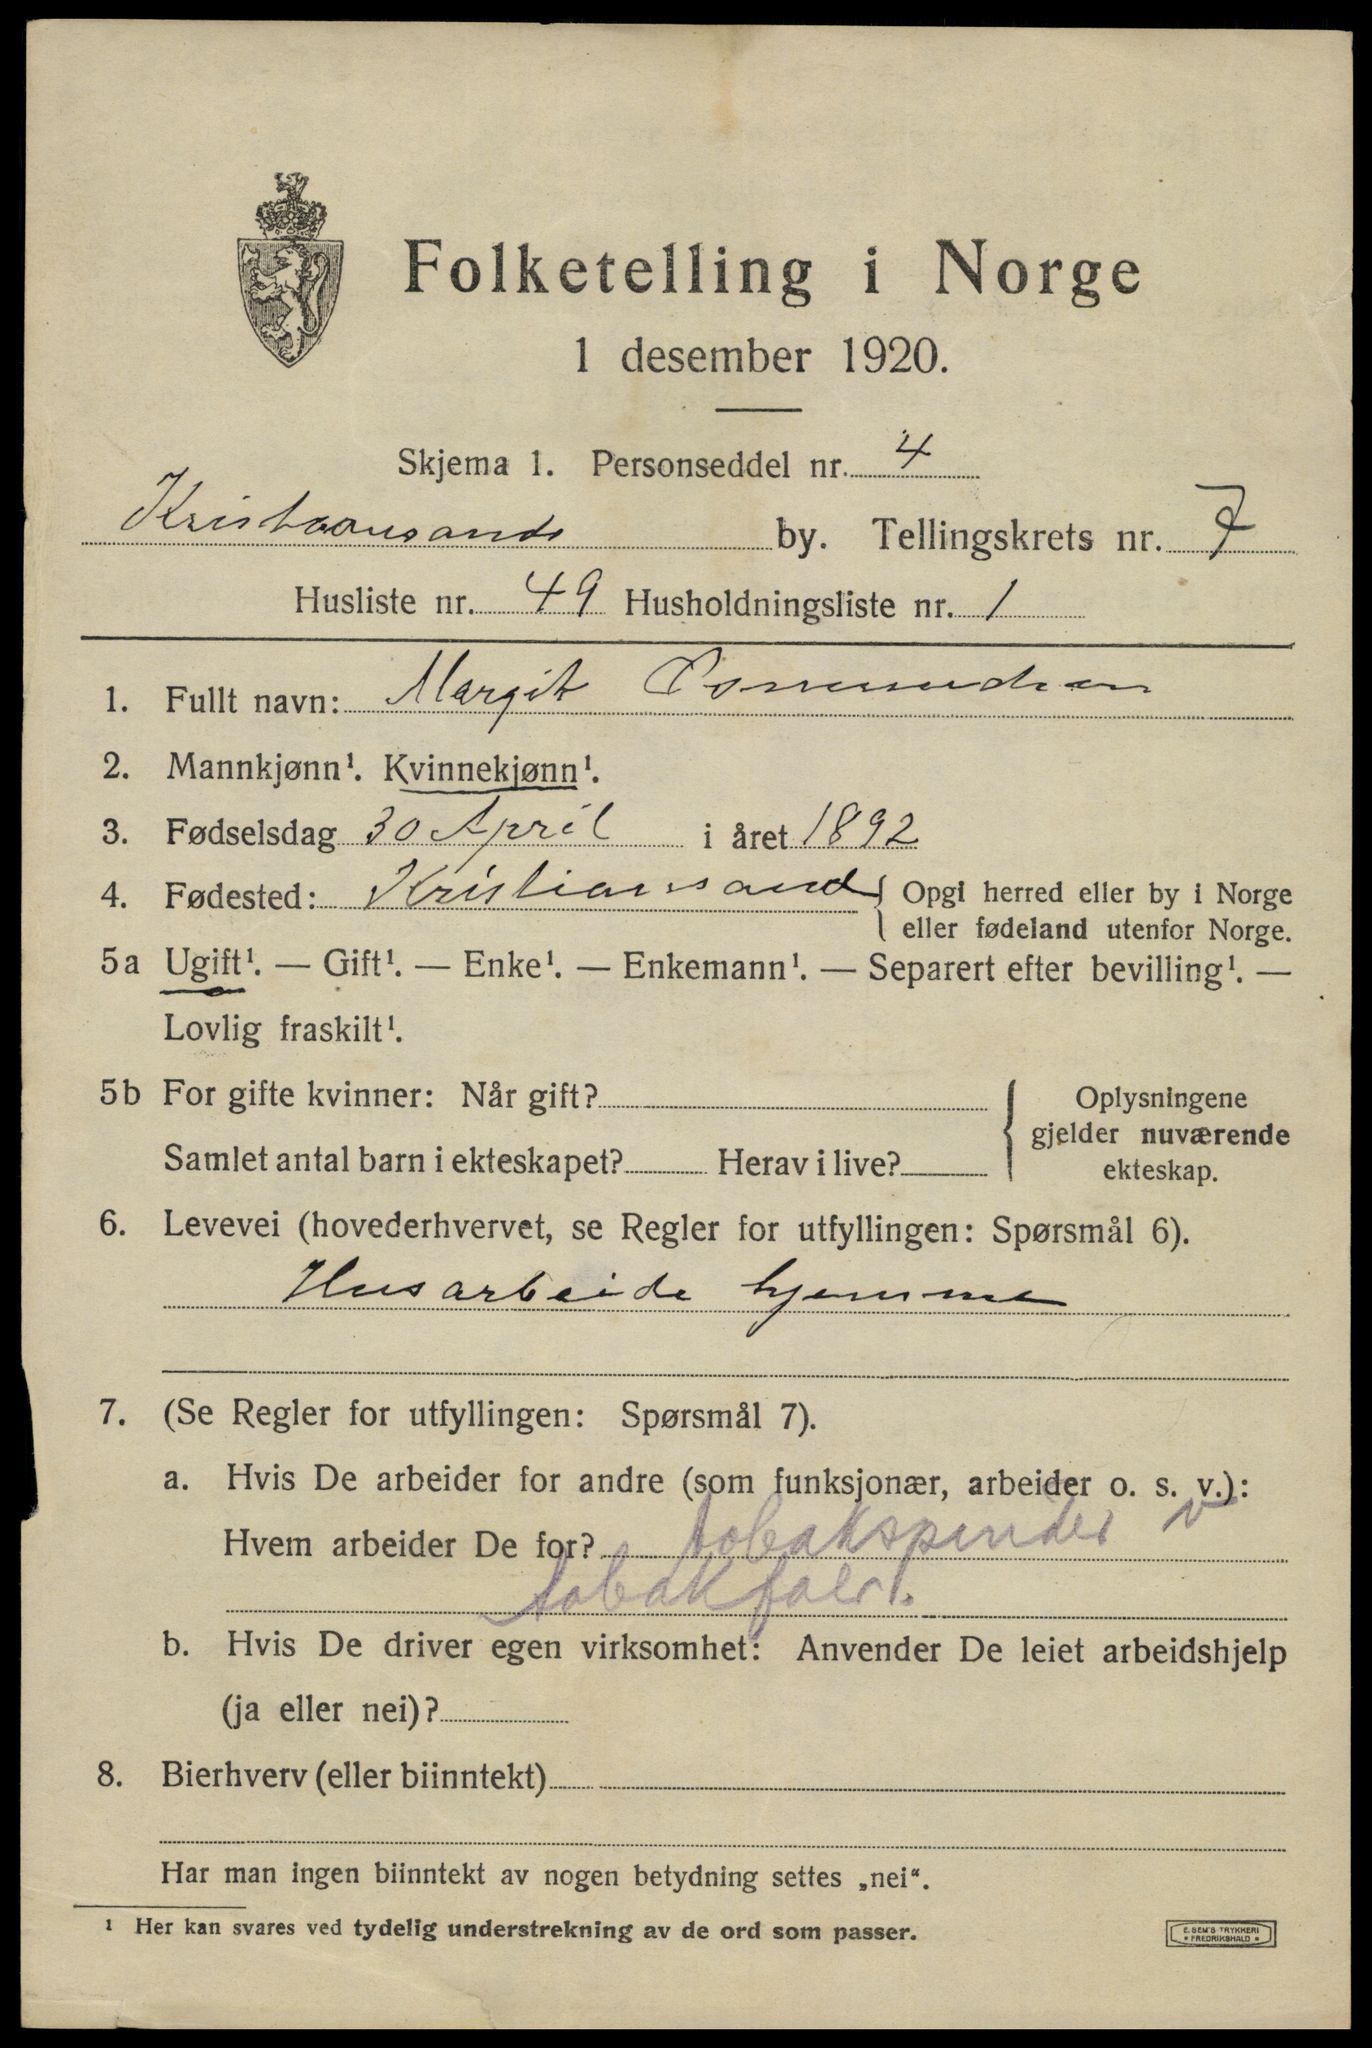 Folketelling i Norge
1 desember 1920.
Skjema 1. Personseddel nr. 4
Kristiansands by. Tellingskrets nr. 7
Husliste nr. 49 Husholdningsliste nr. 1
1. Fullt navn: Margit
2. Mannkjønn¹. Kvinnekjønn¹.
3. Fødselsdag 30 April i året 1892
4. Fødested: Kristiansand { Opgi herred eller by i Norge
eller fødeland utenfor Norge.
5a Ugift¹. — Gift¹. — Enke¹. — Enkemann¹. — Separert efter bevilling¹. —
Lovlig fraskilt¹.
5b For gifte kvinner: Når gift?
Samlet antal barn i ekteskapet? Herav i live?
{ Oplysningene
gjelder nuværende
ekteskap.
6. Levevei (hovederhvervet, se Regler for utfyllingen: Spørsmål 6).
Husarbeide hjemme
7. (Se Regler for utfyllingen: Spørsmål 7).
a. Hvis De arbeider for andre (som funksjonær, arbeider o. s. v.):
Hvem arbeider De for? tobakspinder v
tobakfabr.
b. Hvis De driver egen virksomhet: Anvender De leiet arbeidshjelp
(ja eller nei)?
8. Bierhverv (eller biinntekt)
Har man ingen biinntekt av nogen betydning settes „nei“.
¹ Her kan svares ved tydelig understrekning av de ord som passer.
E. SEM'S TRYKKERI
• FREDRIKSHALD •